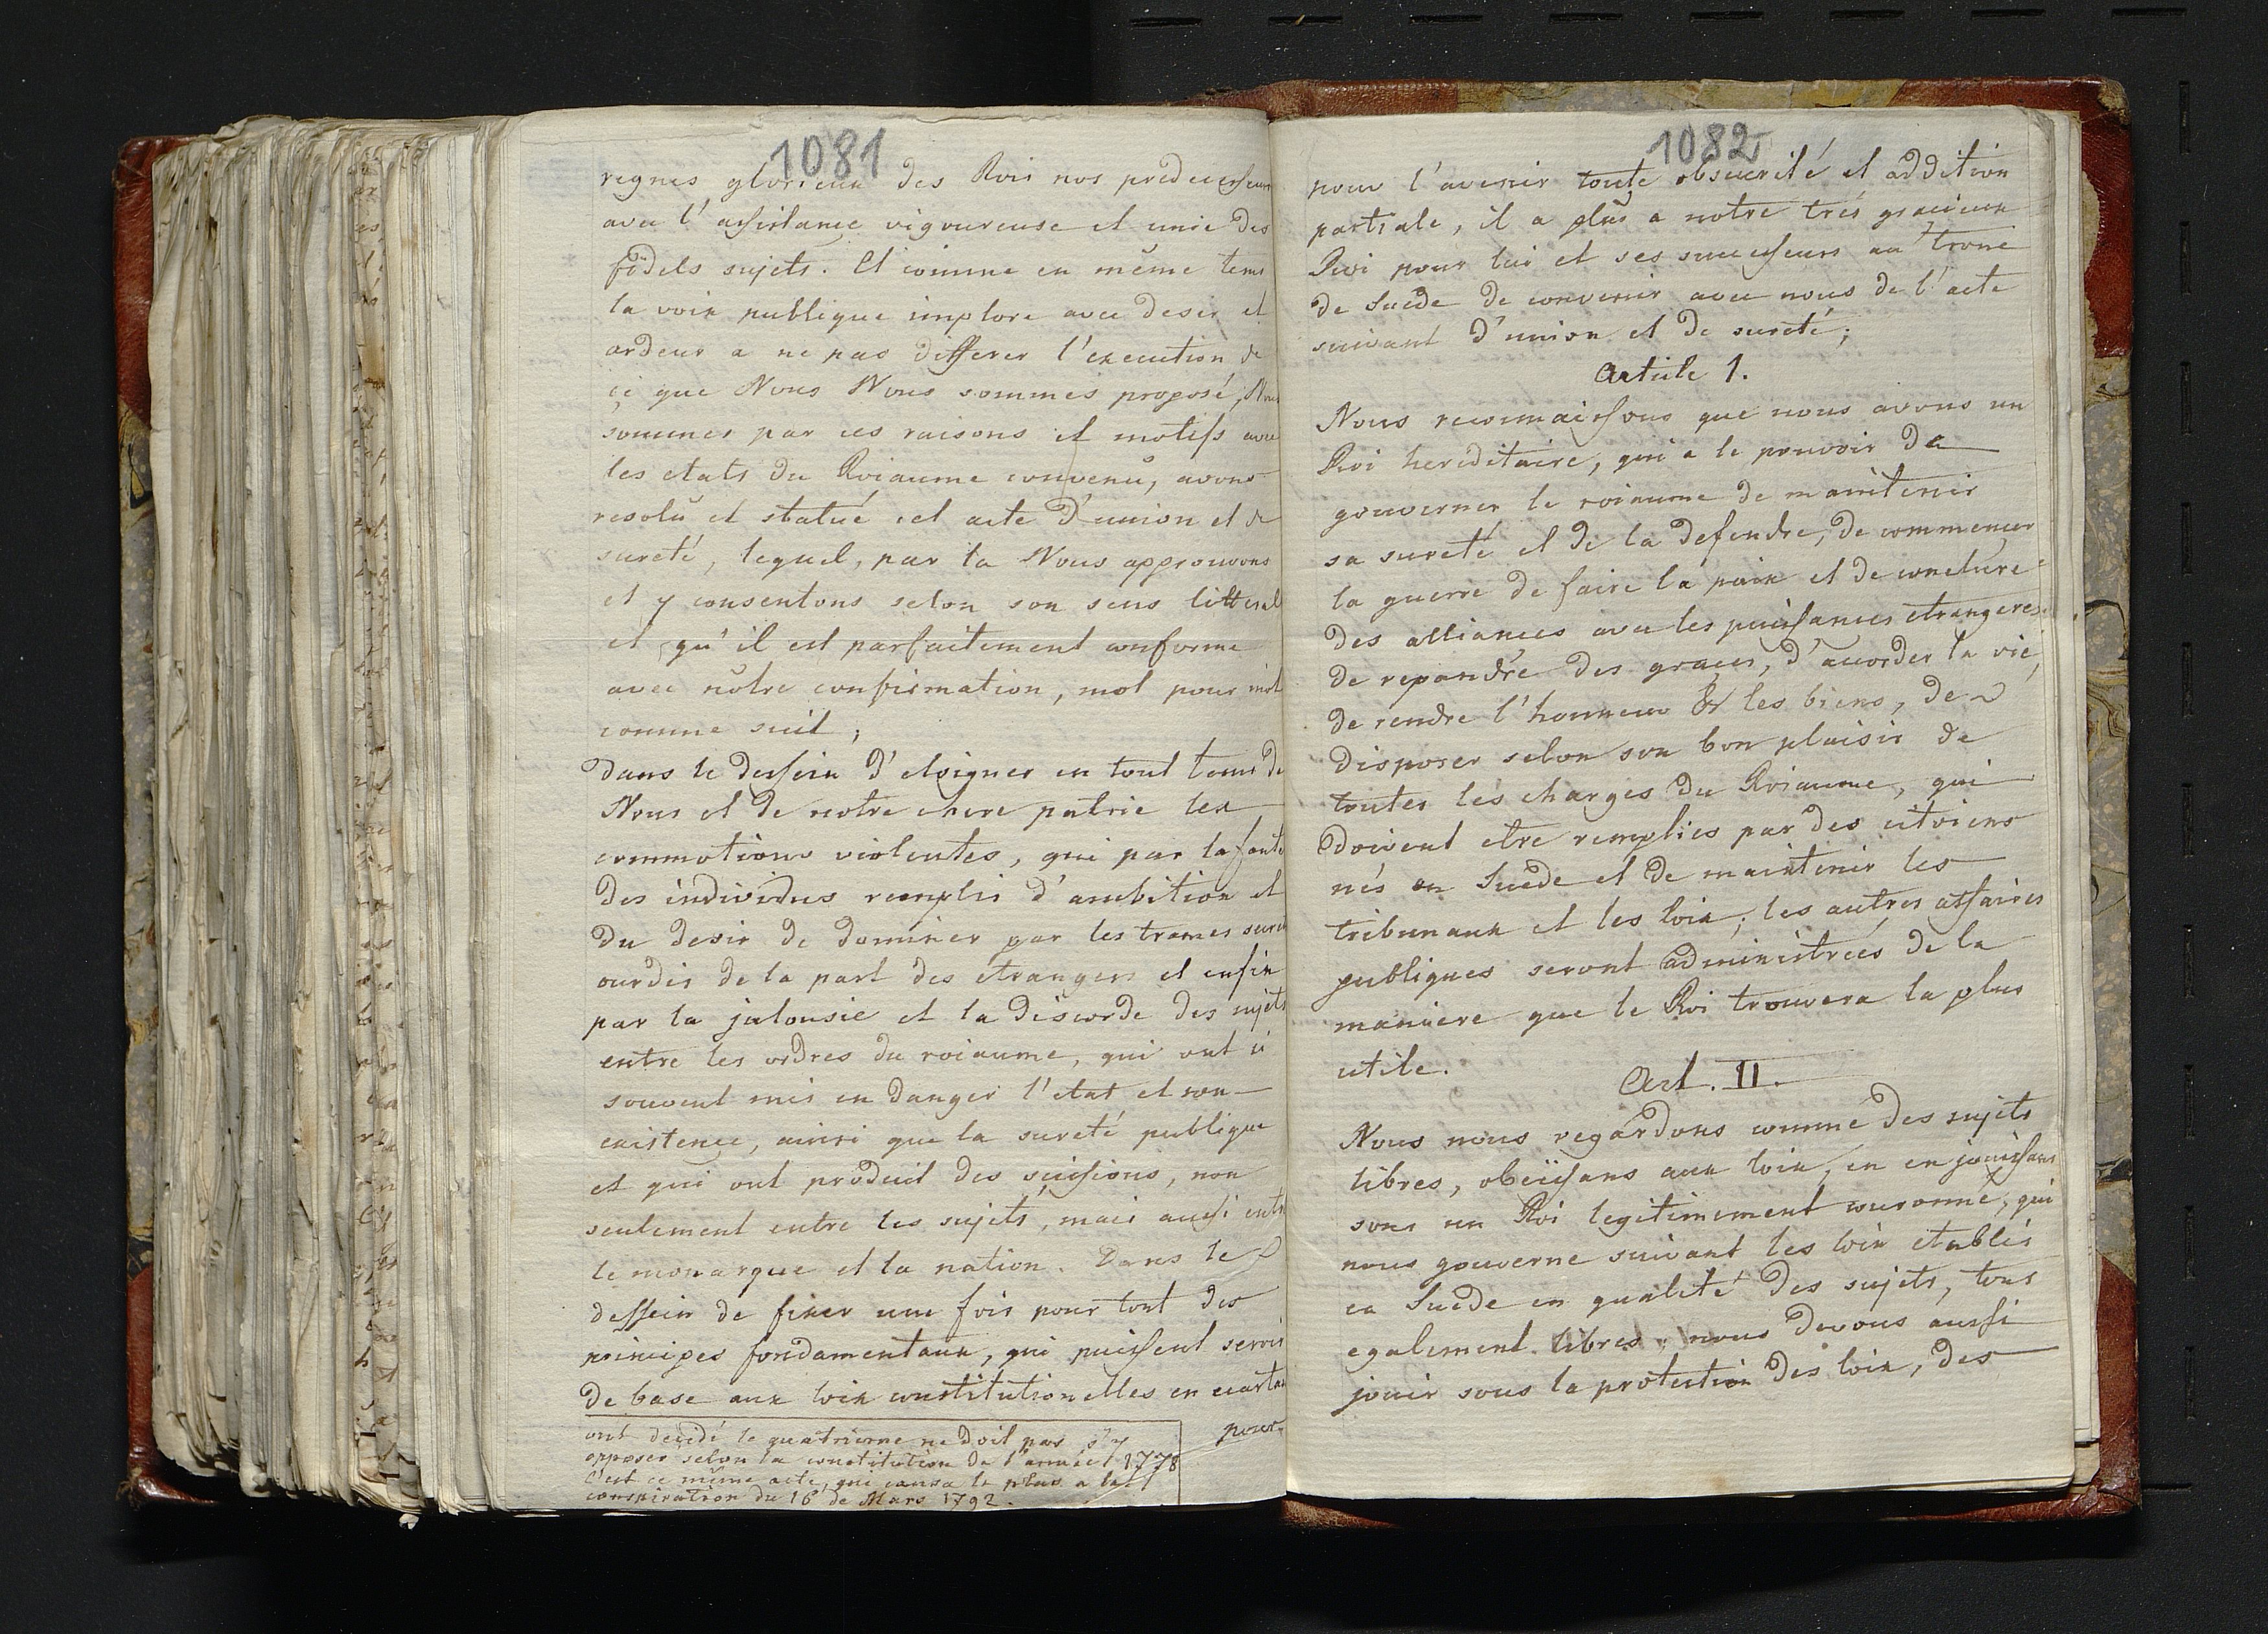 1081
regnes glorieux des Rois nos predecesseurs
avec l'assistance vigoureuse et unie des
fidels sujets. Et comme en même tems
la voix publique implore avec desir et
ardeur a ne pas differer l'execution de
ce que Nous Nous sommes proposé, Nous
sommes par ces raisons et motifs avec
les etats du Roiaume convenû, avons
resolû et statué cet acte d'union et de
sureté, lequel, par la Nous approuvons
et y consentons selon son sens litteral
et qu'il est parfaitement conforme
avec nôtre confirmation, mot pour mot
comme suit;
Dans le dessein d'eloigner en tout tems de
Nous et de notre chere patrie les
commotions violentes, qui par la faute
des individus remplis d'ambition et
du desir de dominer par les trames
ourdis de la part des etrangers et enfin
par la jalousie et la discorde des sujets
entre les ordres du roiaume, qui ont si
souvent mis en danger l'etat et son
existence, ainsi que la sureté publique
et qui ont produit des scissions, non
seulement entre les sujets, mais aussi entre
le monarque et la nation. Dans le
dessein de fixer une fois pour tout des
principes fondamentaux, qui puissent servir
de base aux loix constitutionelles en ecartan
pour
ont decidé le quatrieme ne doit pas s'y
opposer selon la constitution de l'année 1778
C'est ce même acte, qui causa le plus a la
conspiration du 16 de Mars 1792.
1082
pour l'avenir toute obscurité et addition
partiale, il a plûs a notre trés gracieux
Roi pour lui et ses successeurs au trone
de Suede de convenir avec nous de l'acte
suivant d'union et de sureté;
Article 1.
Nous reconnaissons que nous avons un
Roi hereditaire, qui a le pouvoir de
gouverner le roiaume de maintenir
sa sureté et de la defendre, de commencer
la guerre de faire la paix et de conclure
des alliances avec les puissances etrangeres
de repandre des graces, d'accorder la vie,
de rendre l'honneur & les biens, de
disposer selon son bon plaisir de
toutes les charges du Roiaume, qui
doivent etre remplies par des citoiens
nés en Suede et de maintenir les
tribunaux et les loix; les autres affaires
publiques seront administrées de la
maniere que le Roi trouvera la plus
utile.
Art. II.
Nous nous regardons comme des sujets
libres, obeïssans aux loix, en en jouissans
sous un Roi legitimement couronné, qui
nous gouverne suivant les loix etablis
en Suede en qualité des sujets, tous
egalement libres, nous devons aussi
jouir sous la protection des loix, des